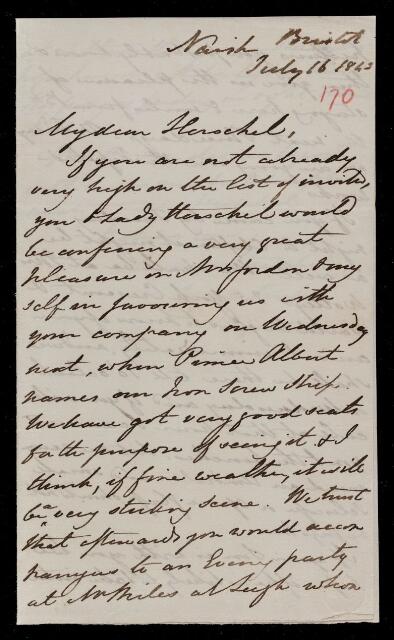 Naish Bristol
July 16 1843
170
My dear Herschel,
If you are not already
very high on the list of invités,
you & Lady Herschel would
be conferring a very great
pleasure on Mrs Gordon & my
self in favouring us with
your company on Wednesday
next, when Prince Albert
names our Iron Screw Ship.
We have got very good seats
for the purpose of seeing it & I
think, if fine weather, it will
be a very striking scene. We trust
that afterwards you would accom
pany us to an Evening party
at Mr Miles at Leigh whom